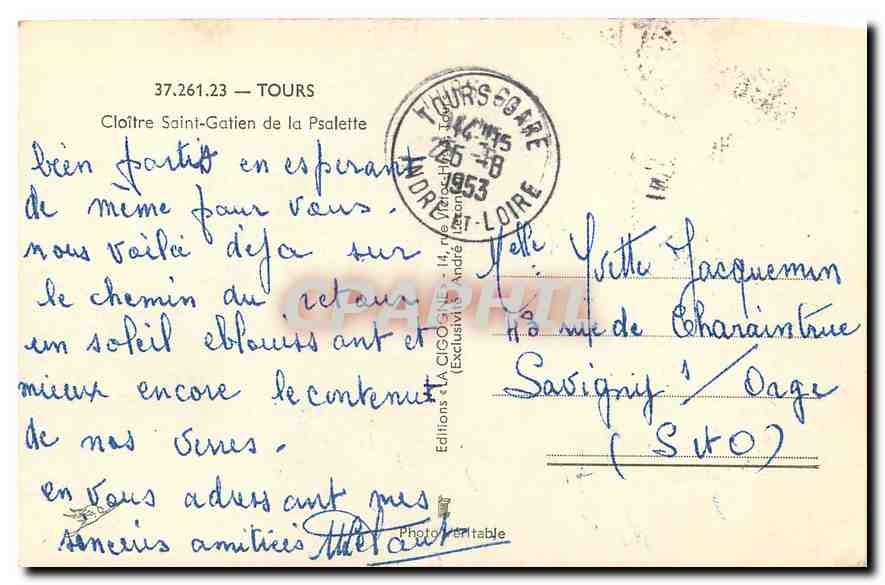 37.261.23 — TOURS
Cloître Saint-Gatien de la Psalette
bien partis en esperant
de même pour vous.
nous voilà déjà sur
le chemin du retour
un soleil eblouissant et
mieux encore le contenut
de nos verres.
en vous adressant mes
sincères amitiées
Editions «LA CIGOGNE» - 14, rue Victor-Hugo, Tours
(Exclusivité André Leconte)
Photo Véritable
TOURS-GARE
14H15
26-8
1953
INDRE-ET-LOIRE
CPAPHIL
Melle Yvette Jacquemin
73 rue de Charaintrue
Savigny s/ Orge
(S et O)